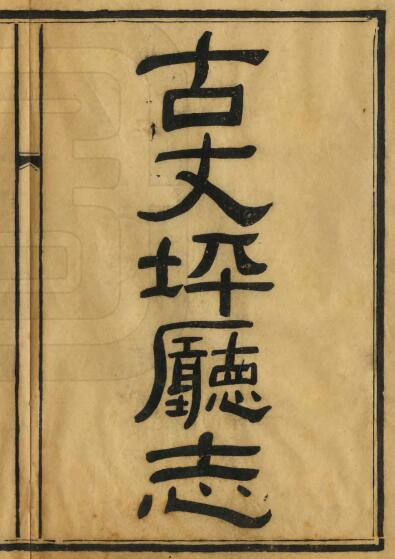 古丈坪廳志